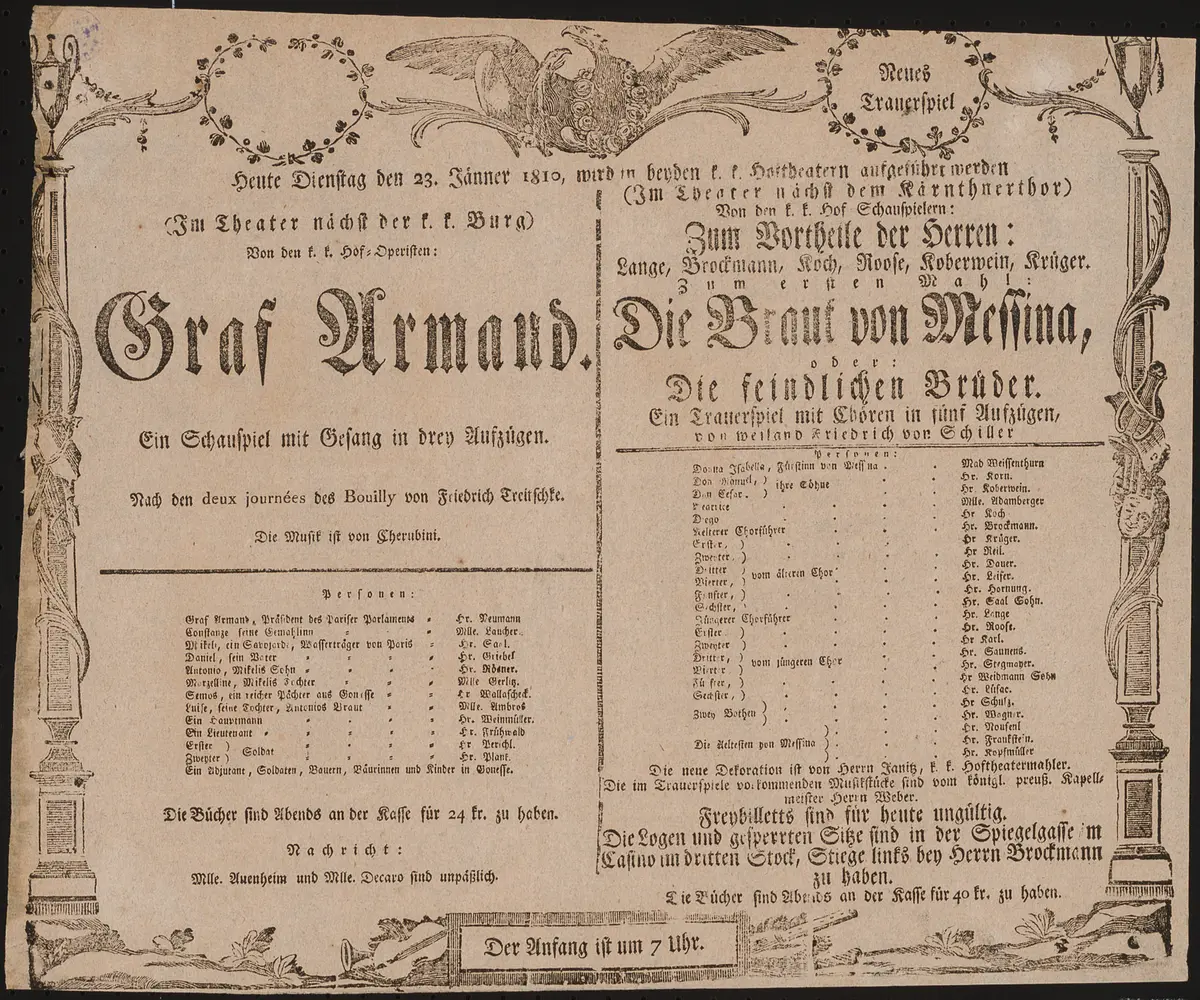 Neues
Trauerspiel
Heute Dienstag den 23. Jänner 1810, wird in beyden k. k. Hoftheatern aufgeführt werden
(Im Theater nächst der k. k. Burg)
Von den k. k. Hof-Operisten:
Graf Armand.
Ein Schauspiel mit Gesang in drey Aufzügen.
Nach den deux journées des Bouilly von Friedrich Treitschke.
Die Musik ist von Cherubini.
Personen:
Graf Armand, Präsident des Pariser Parlaments = Hr. Neumann
Constanze seine Gemahlinn = = Mlle. Laucher.
Mikeli, ein Savojarde, Wasserträger von Paris = Hr. Saal.
Daniel, sein Vater = = = = Hr. Griebel
Antonio, Mikelis Sohn = = = = Hr. Rösner.
Marzelline, Mikelis Tochter = = = Mlle Gerlitz.
Semos, ein reicher Pächter aus Gonesse = = Hr Wallascheck.
Luise, seine Tochter, Antonios Braut = = Mlle. Ambros
Ein Hauptmann = = = = Hr. Weinmüller.
Ein Lieutenant = = = = Hr. Frühwald
Erster ) = = = = Hr Berichl.
Zweyter ) Soldat = = = = Hr. Plank.
Ein Adjutant, Soldaten, Bauern, Bäurinnen und Kinder in Gonesse.
Die Bücher sind Abends an der Kasse für 24 kr. zu haben.
Nachricht:
Mlle. Auenheim und Mlle. Decaro sind unpäßlich.
(Im Theater nächst dem Kärnthnerthor)
Von den k. k. Hof Schauspielern:
Zum Vortheile der Herren:
Lange, Brockmann, Koch, Roose, Koberwein, Krüger.
Zum ersten Mahl:
Die Braut von Messina,
oder:
Die feindlichen Brüder.
Ein Trauerspiel mit Chören in fünf Aufzügen,
von weiland Friedrich von Schiller
Personen:
Donna Isabella, Fürstinn von Messina . . Mad Weissenthurn
Don Manuel, ) . . . Hr. Korn.
Don Cesar. ) ihre Söhne . . . Hr Koberwein.
Beatrice . . . . Mlle. Adamberger
Diego . . . . Hr Koch
Aelterer Chorführer . . . . Hr. Brockmann.
Erster, ) . . . . Hr Krüger.
Zweyter, ) . . . . Hr Reil.
Dritter ) vom älteren Chor . . . Hr. Dauer.
Vierter, ) . . . . Hr. Leiser.
Fünfter, ) . . . . Hr. Hornung.
Sechster, ) . . . . Hr. Saal Sohn.
Jüngerer Chorführer . . . . Hr. Lange
Erster ) . . . . Hr. Roose.
Zweyter ) . . . . Hr Karl.
Dritter, ) vom jüngeren Chor . . . Hr. Saunens.
Vierter ) . . . . Hr. Stegmayer.
Fünfter, ) . . . . Hr Weidmann Sohn
Sechster, ) . . . . Hr. Lüsac.
Zwey Bothen ) . . . . Hr Schulz.
) . . . . Hr. Wagner.
) . . . Hr. Noufenl
Die Aeltesten von Messina ) . . . Hr. Frankstein.
) . . . Hr. Kopfmüller
Die neue Dekoration ist von Herrn Janitz, k. k. Hoftheatermahler.
Die im Trauerspiele vorkommenden Musikstücke sind vom königl. preuß. Kapell-
meister Herrn Weber.
Freybilletts sind für heute ungültig.
Die Logen und gesperrten Sitze sind in der Spiegelgasse im
Casino im dritten Stock, Stiege links bey Herrn Brockmann
zu haben.
Die Bücher sind Abends an der Kasse für 40 kr. zu haben.
Der Anfang ist um 7 Uhr.